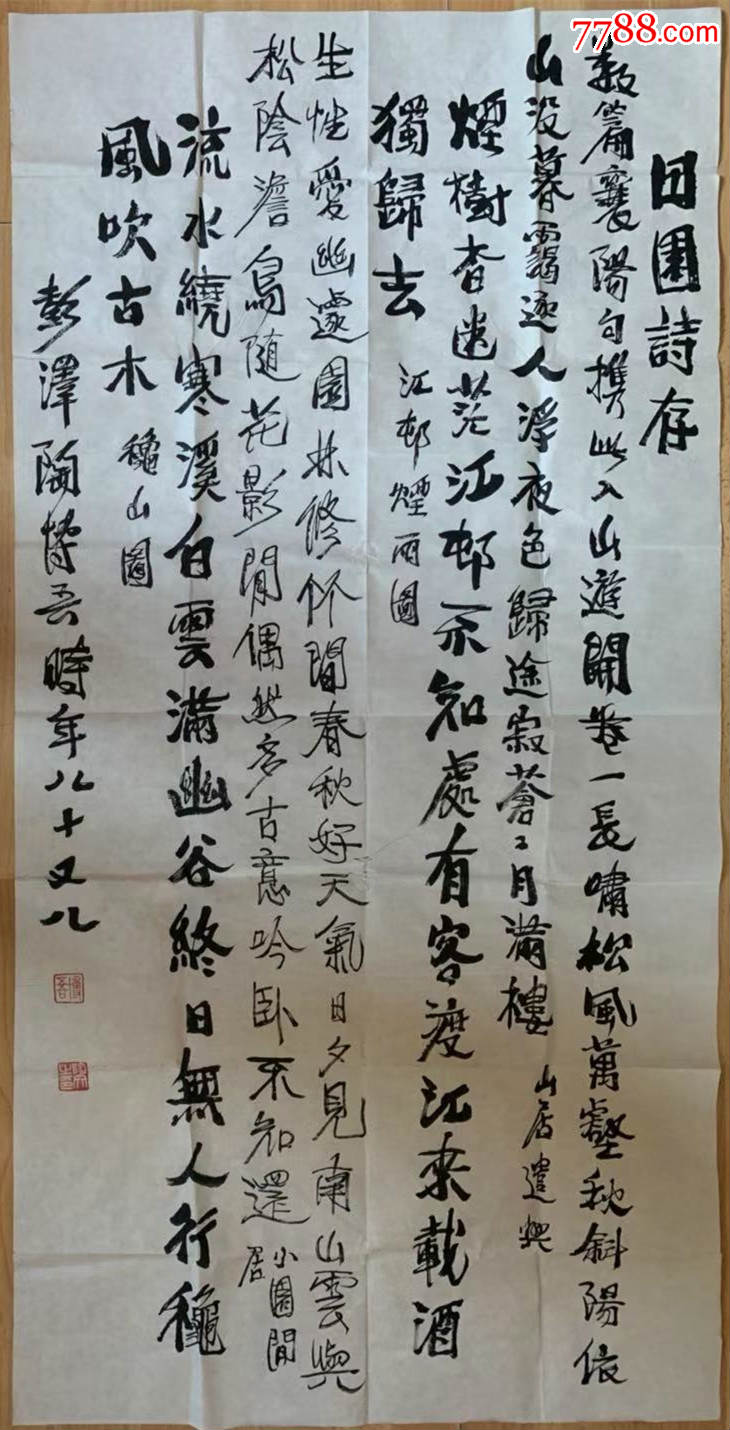 7788.com
日園詩存
數篇襄陽句攜此入山遊開卷一長嘯松風萬壑秋斜陽依
山没暮靄逐人浮夜色歸途寂蒼〻月滿樓 山居遣興
煙樹杳迷茫江邨不知處有客渡江來載酒
獨歸去 江邨煙雨圖
生性愛幽邃園林修作閒春秋好天氣日夕見南山雲與
松陰澹鳥隨花影閒偶然多古意吟卧不知還 小園閒
居
流水繞寒溪白雲滿幽谷終日無人行龝
風吹古木 龝山圖
彭澤陶博吾時年八十又八
博吾